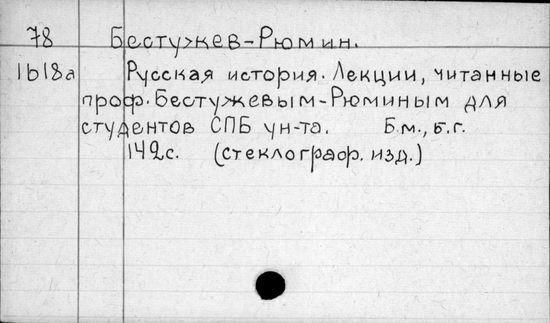 78 Бестужев-Рюмин.
1b18a Русская история. Лекции, читанные
проф. Бестужевым-Рюминым для
студентов СПБ ун-та. Б.м., б.г.
142с. (стеклограф. изд.)